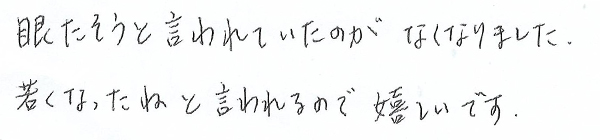 眠たそうと言われていたのが なくなりました.
若くなったねと言われるので 嬉しいです.